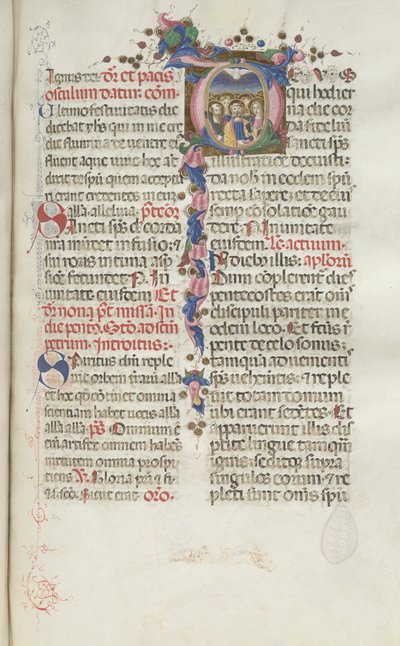 Agnus dei. dr̄ et pacis
osculum datur. cōm̄
Ultimo festiuitatis die
dicebat yh̄s qui in me cre
dit flumina de uentre ei
fluent aque uiue hoc at̄
dixit de spū quem accepturi
erant credentes in eum
alla alleluia. p̄t cōr̄.
Sancti sp̄s dn̄e corda
nra mūdet infusio; et
sui roris intima asp̄
sione fecundet. P. In
unitate eiusdem Et
dr̄ nona p̄t missā. In
die pentec̄. Stō ad scm̄
petrum. Introitus.
Spiritus dm̄ reple
uit orbem terrarū alla
et hoc quod cōtinet omnia
scientiam habet uocis alla
alla alla. p̄s Omnium ē
enī artifex omnem habēs
uirtutem omnia prospi
ciens. V. Gloria pr̄i et fi
et sc̄o. Sicut erat. Or̄o.
Deus
qui hodier
na die cor
da fidelium
sancti sp̄s
illustratiōe docuisti.
da nob in eodem spū
recta sapere; et de eius
semp consolatiōe gau
dere. P. In unitate
eiusdem. Lc̄ actuum.
In dieb illis: apl̄oru
Dum cōplerent̄ dies
pentecostes erāt om̄s
discipuli pariter in e
odem loco. Et factus ē
repente de celo sonus:
tamquā aduenienti
sp̄s uehemētis: et reple
uit totam domum
ubi erant sedētes. Et
apparuerunt illis dis
ptite lingue tamq̄m
ignis: seditque supra
singulos eorum: et re
pleti sunt om̄s spū